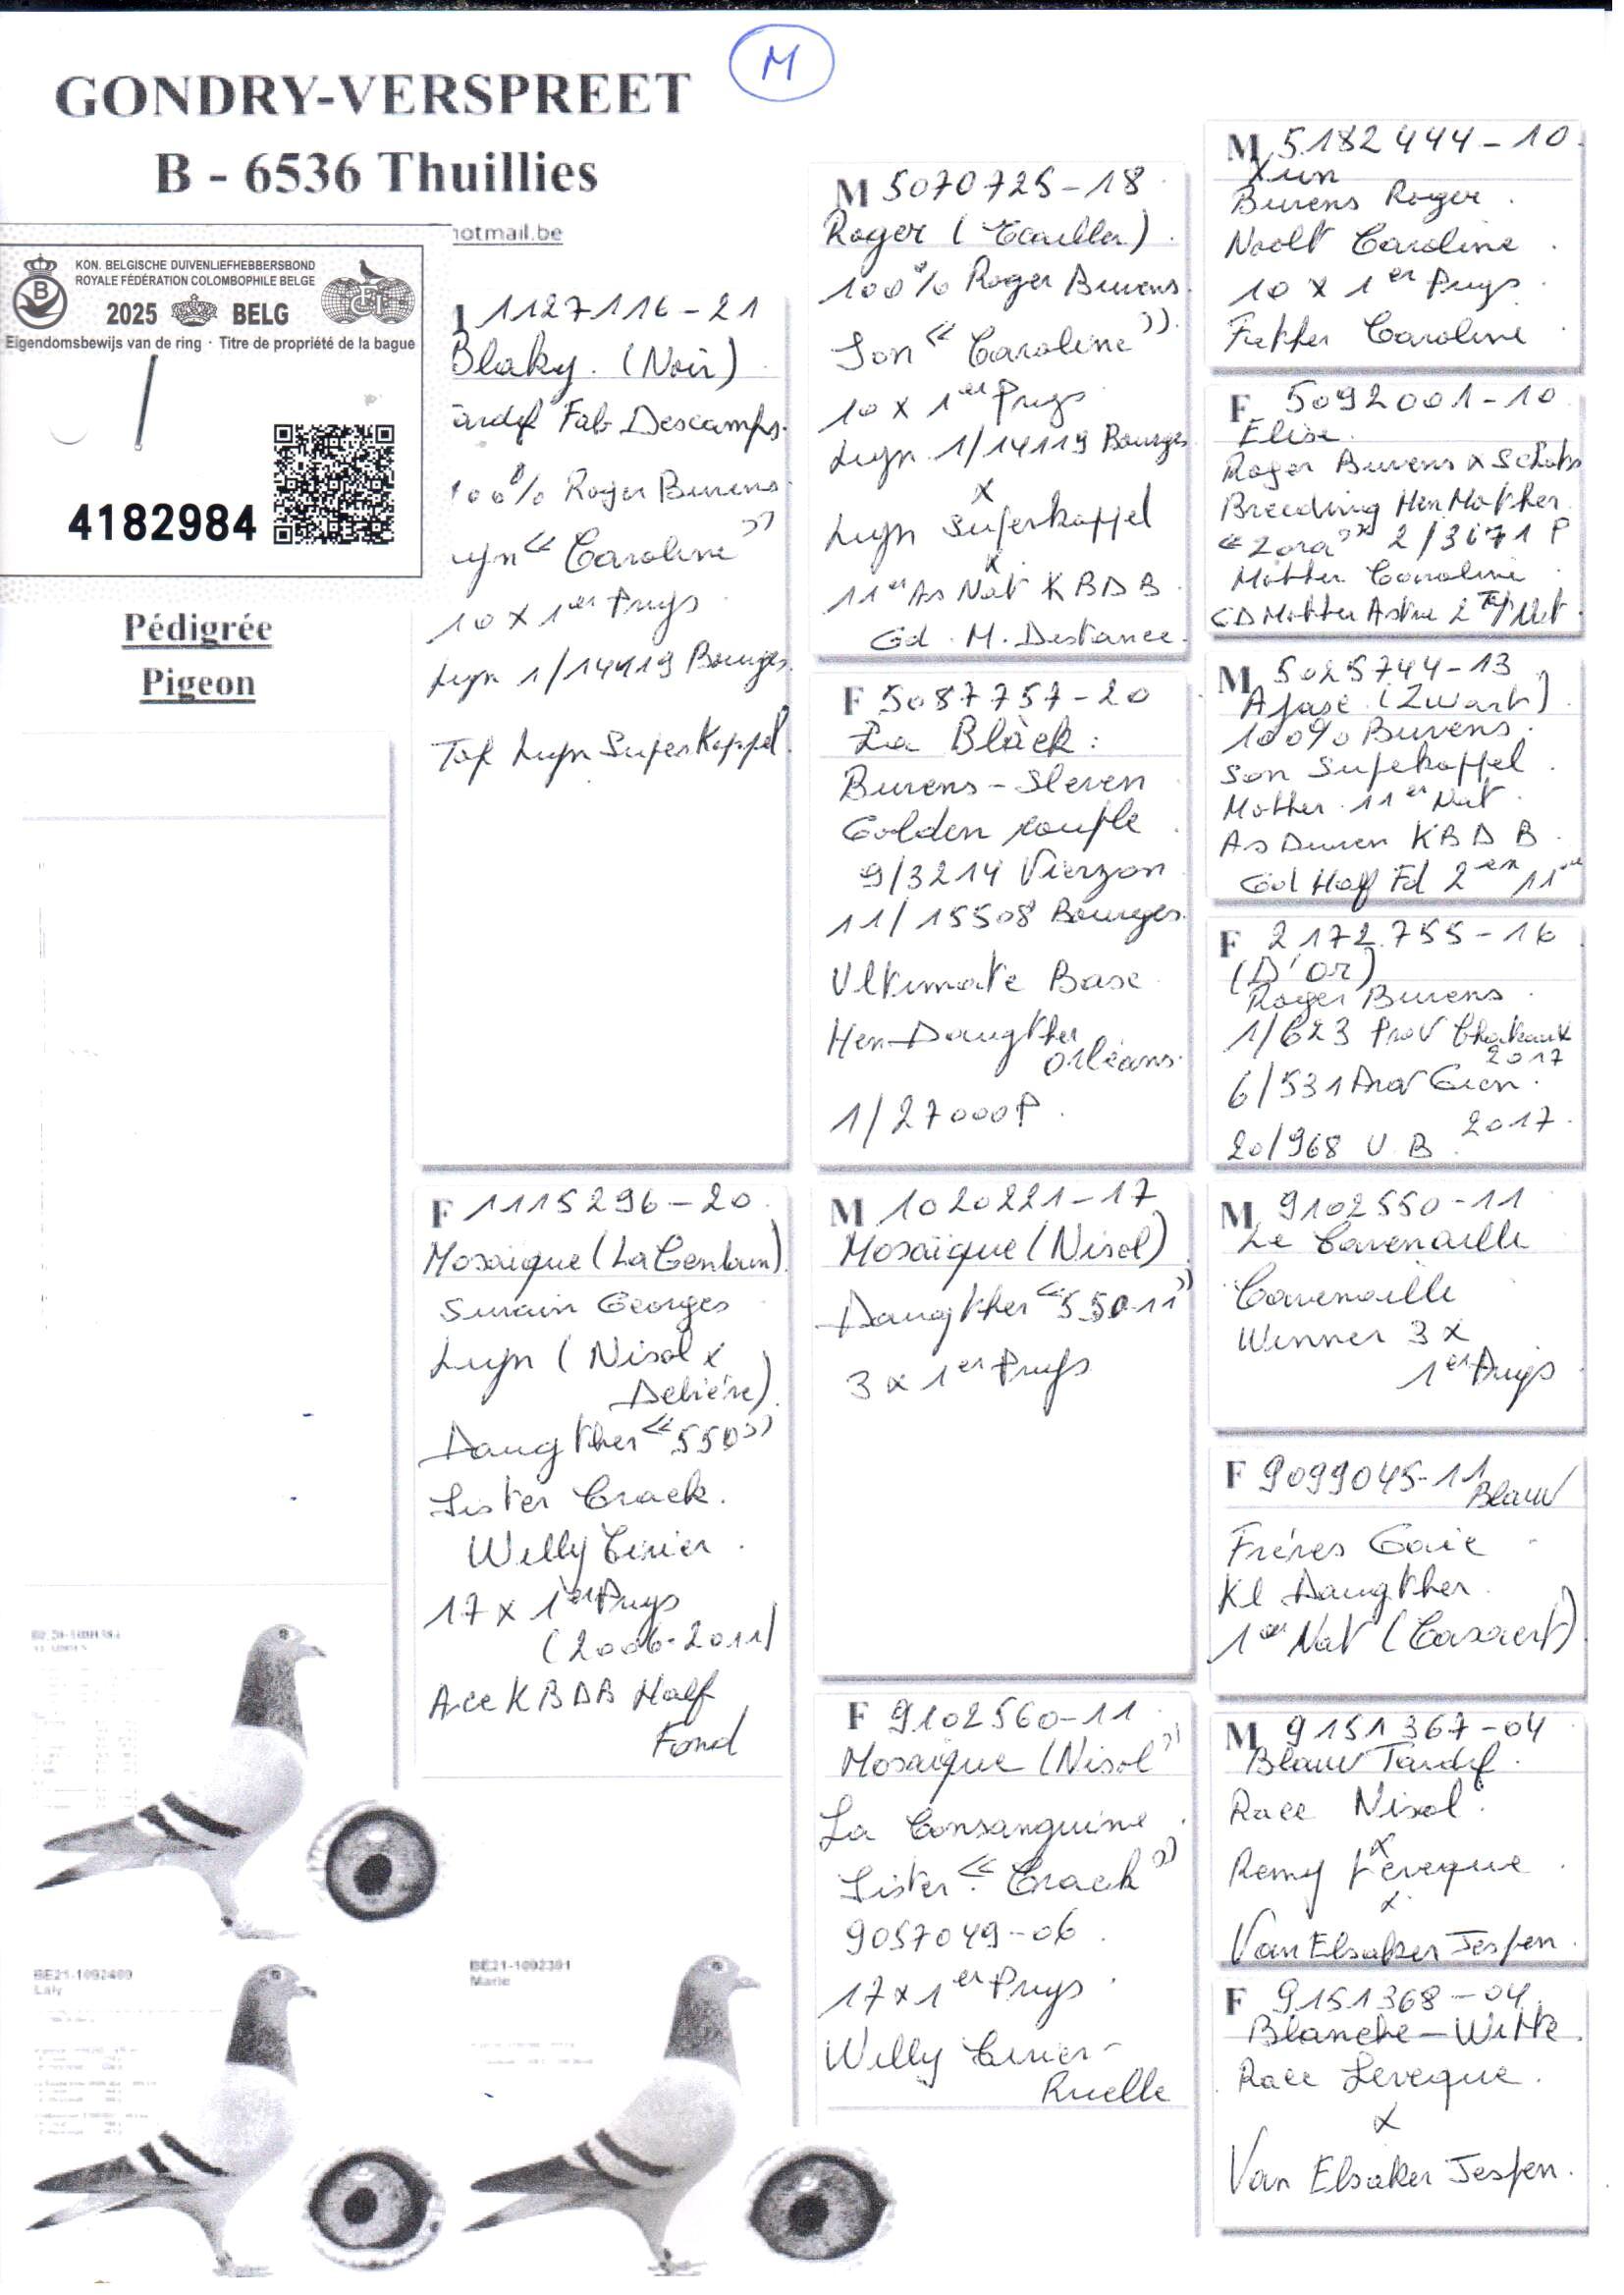 M
GONDRY-VERSPREET
B - 6536 Thuillies
hotmail.be
KON. BELGISCHE DUIVENLIEFHEBBERSBOND
ROYALE FÉDÉRATION COLOMBOPHILE BELGE
2025 BELG
Eigendomsbewijs van de ring · Titre de propriété de la bague
4182984
Pédigrée
Pigeon
1127116-21
Blaky. (Noir)
ardif Fab Descamps.
100% Roger Burens
ijn "Caroline"
10 x 1er Prijs
Lijn 1/14119 Bourges.
Top Lijn Superkoppel.
F 1115296-20
Mosaïque (La Genbun)
Surain Georges
Lijn (Nisol x
Delière)
Daugther "550"
Sister Crack.
Willy Cirier.
17 x 1er Prijs
(2006-2011)
Ace KBDB Half
Fond
M 5070725-18
Roger (Ecailler)
100% Roger Burens.
Son "Caroline".
10 x 1er Prijs
Lijn 1/14119 Bourges
x
Lijn Superkoppel
x
11er As Nat KBDB
Gd. M. Distance.
F 5087757-20
La Black:
Burens-Steven
Golden couple
9/3214 Vierzon
11/15508 Bourges.
Ultimate Base
Hen Daugther
Orléans.
1/27000P.
M 1020221-17
Mosaïque (Nisol)
Daugther "550-11"
3 x 1er Prijs
F 9102560-11
Mosaïque (Nisol"
La Consanguine
Sister "Crack"
9057049-06
17 x 1er Prijs
Willy Cirier-
Ruelle
M 5182444-10
Xun
Burens Roger
Noolt Caroline
10 x 1er Prijs
Father Caroline
F 5092001-10
Elise
Roger Burens x Schots
Breeding Hen Mother
"Zora" 2/3671 P
Mother Caroline
GD Mother Astra 2 Top Nat
M 5025744-13
Ajase (Zwart)
100% Burens.
Son Supekoppel
Mother 11er Nat
As Duiven KBDB
Gd Half Fd 2en 11
F 2172755-16
(D'or)
Roger Burens
1/623 Prov Chateaux
2017
6/531 Prov Gien.
2017
20/968 U.B
M 9102550-11
Le Cavenaille
Cavenaille
Winner 3x
1er Prijs
F 9099045-11
Blauw
Frères Gaie
Kl Daugther
1er Nat (Casaert)
M 9151367-04
Blauw Tardif
Race Nisol
x
Remy Leveque
x
Van Elsaker Jespen.
F 9151368-04
Blanche-Witte
Race Leveque.
x
Van Elsaker Jespen.
BE21-1092409
Laly
BE21-1092391
Marie